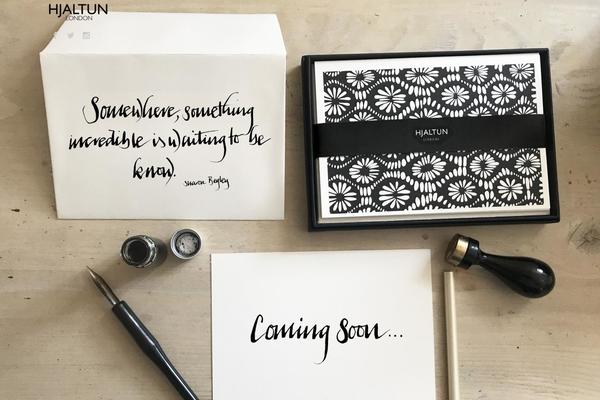 HJALTUN
LONDON
Somewhere, something
incredible is waiting to be
know.
Sharon Begley
HJALTUN
LONDON
Coming Soon...